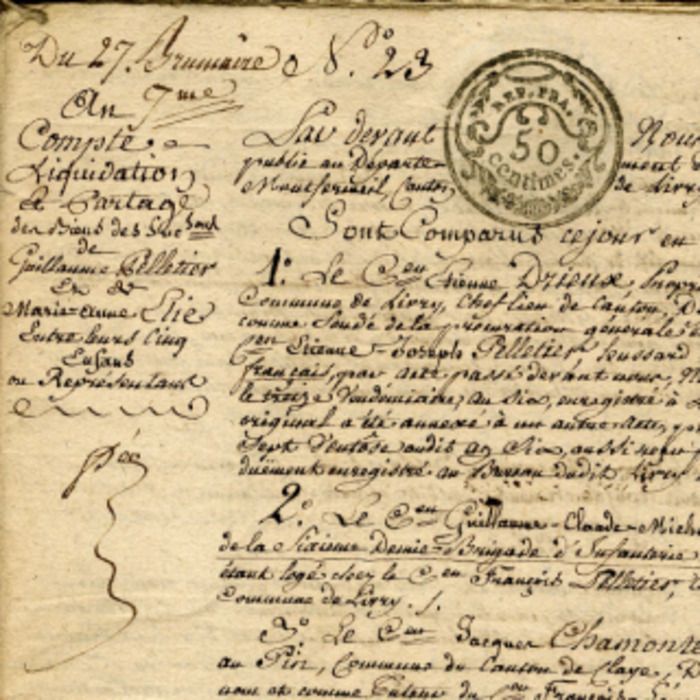 Du 27. Brumaire N.° 23
An 7me
Compte
Liquidation
et Partage
des Biens des Succ.ons
de
Guillaume Pelletier
Et de
Marie-anne Elie
Entre leurs Cinq
Enfans
ou Représentans
REP. FRA.
50
centimes.
Par devant Nou
publié au Départe ment d
Montfermeil, Canton de Livry
Sont Comparus cejour en
1.° Le C.en Etienne Drieux, Propr
Commune de Livry, Cheflieu de Canton, D
comme fondé de la procuration générale
C.en Etienne-Joseph Pelletier houssard
français, par acte passé devant nous, N
le treize Vendémiaire, an Six, enregistré à
original a été annexé à un autre acte, p
Sept Ventôse audit an Six, aussi reçu p
duëment enregistré au Bureau dudit Livry
2.° Le C.en Guillaume-Claude-Mich
de la Sixieme Demie-Brigade d'Infanterie
étant logé chez le C.en François Pelletier,
Commune de Livry.
3.° Le C.en Jacques Chamonte
au Pin, Commune du Canton de Claye,
nom et comme Tuteur du C.en François